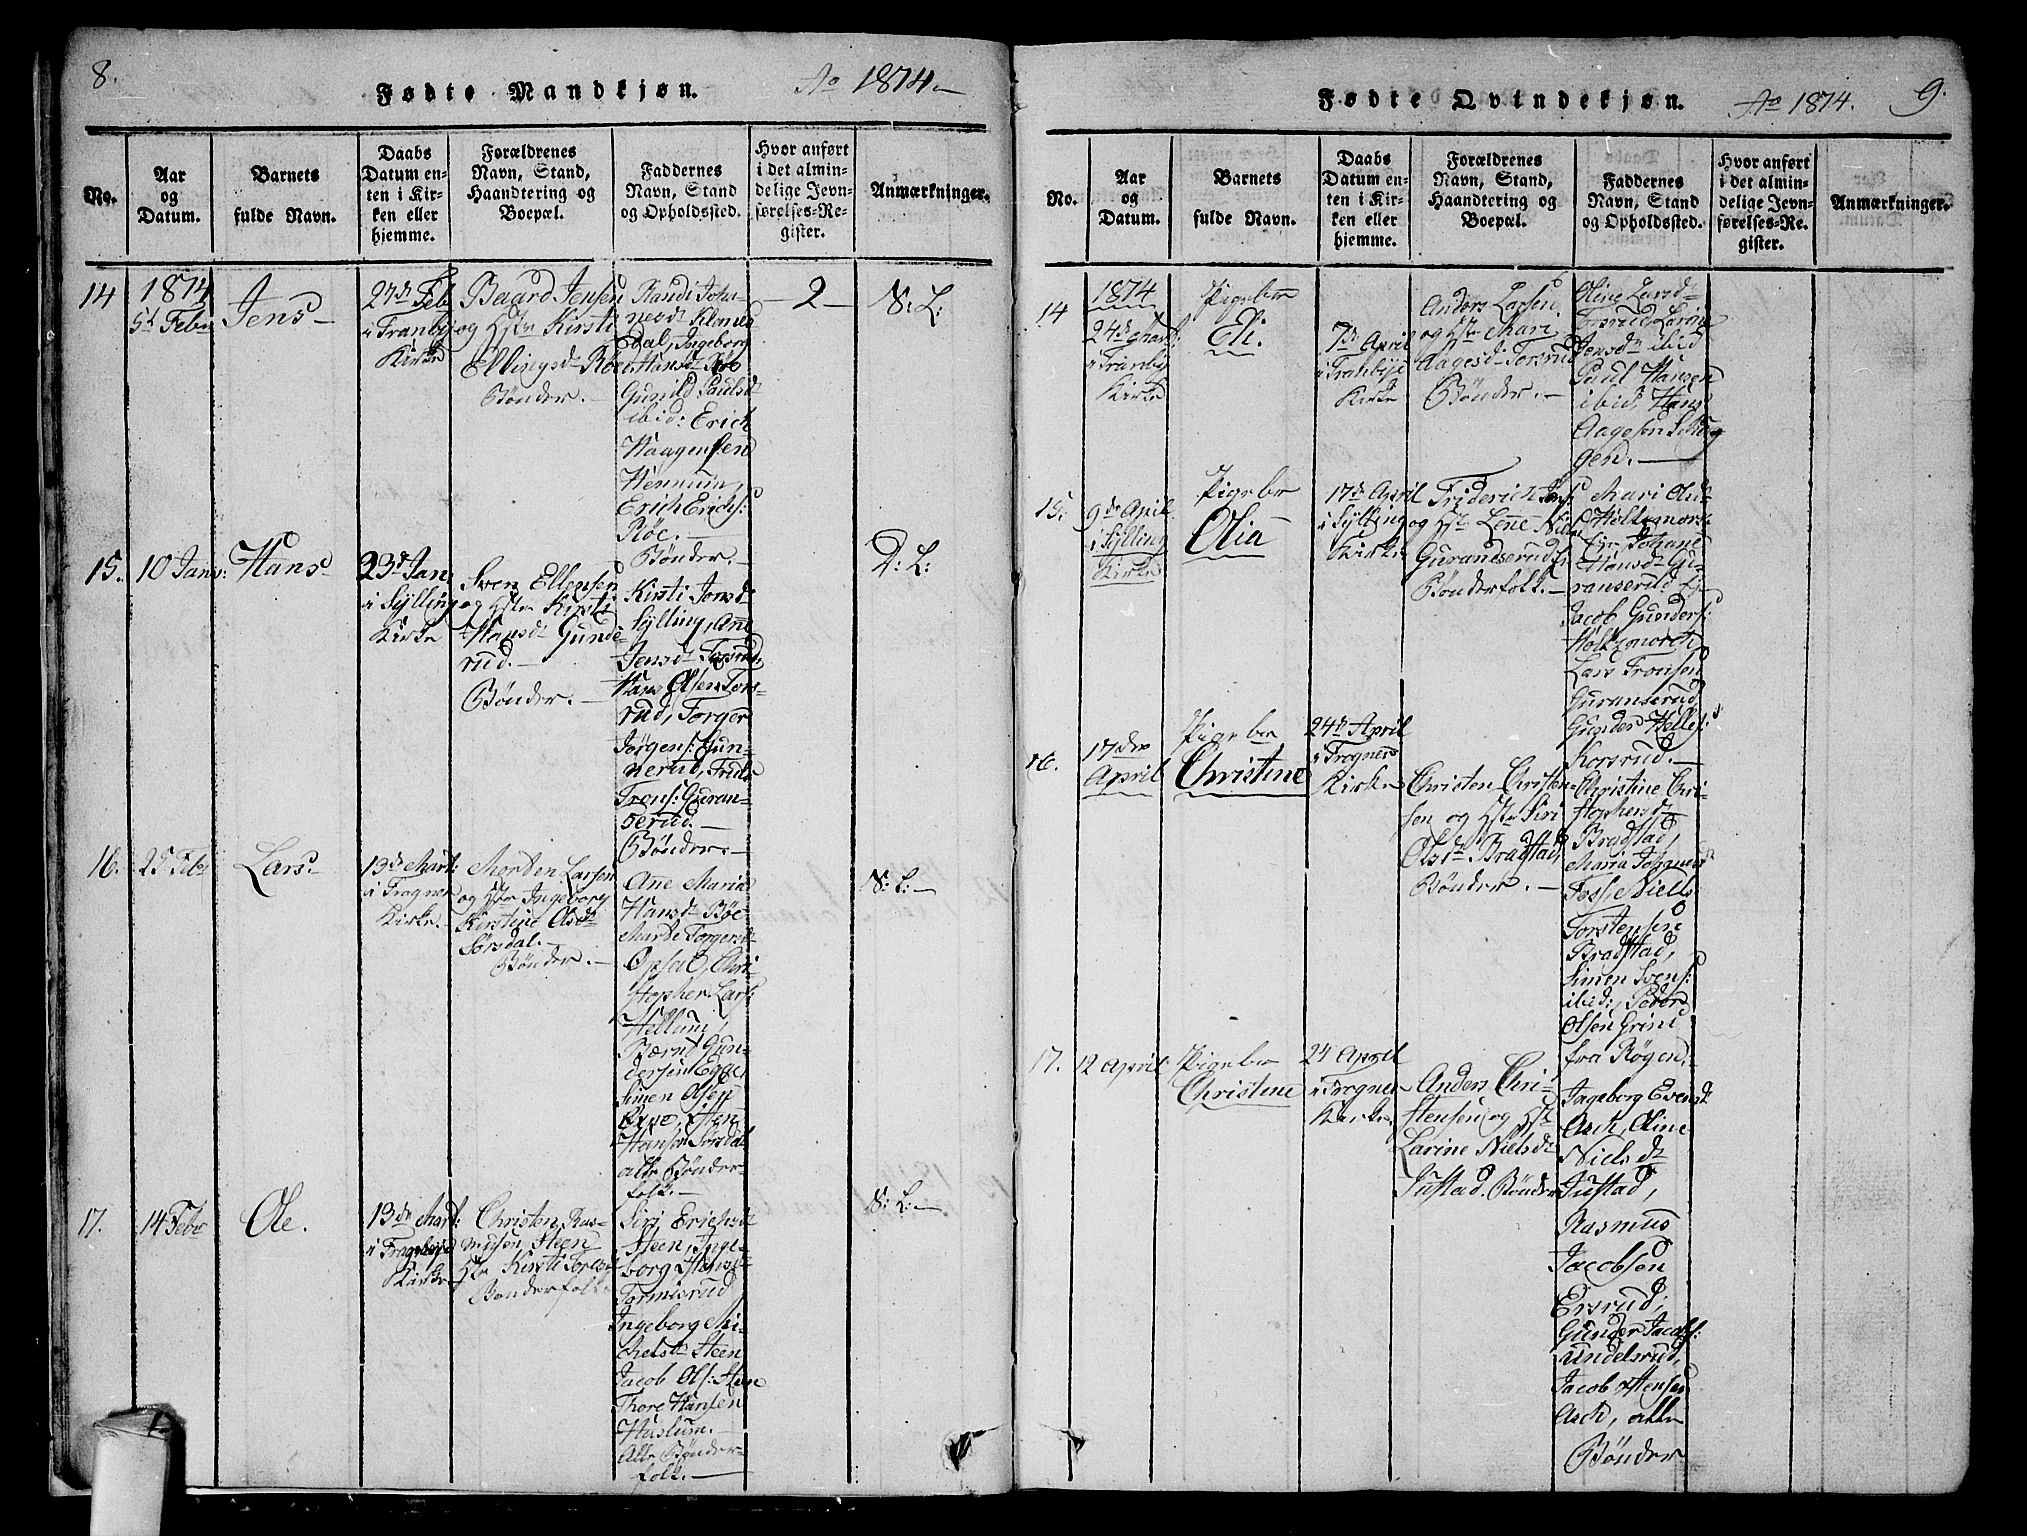 8.
Fødte Mandkjøn.
Ao 1814.
No.
Aar
og
Datum.
Barnets
fulde Navn.
Daabs
Datum en-
ten i Kir-
ken eller
hjemme.
Forældrenes
Navn, Stand,
Haandtering og
Boepæl.
Faddernes
Navn, Stand
og Opholdssted.
Hvor anført
i det almin-
delige Jevn-
førelses-Re-
gister.
Anmærkninger.
14
1814
5t Febr
Jens
27de Feb
i Tranby
Kirke
Baard Jensen
og Hstr Kirsti
Ellingsd Røed
Bønder.
Randi Joha-
nesdt
Dal, Ingeborg
Hansdt Røe
Gunild Paulsdt
ibid: Erich
Haagensen
Hennum,
Erich Erichs:
Røe.
Bønder.
2
N: L:
15.
10 Janr:
Hans
23d Jan
i Sylling
Kirke
Sven Ellensen
og Hstr Kirsti
Hansdt Gunde-
rud.
Bønder.
Kirsti Jonsdt
Sylling, Anne
Jensdt Torsrud,
Hans Olsen Tors-
rud, Torger
Jørgens: Gun-
nerud, Frids
Frens: Guran-
serud.
Bønder.
D: L:
16.
25 Febr
Lars.
13de Mart:
i Frogner
Kirke.
Morten Larsen
og Hstr Ingeborg
Kirstine Olsdt
Sørsdal.
Bønder.
Ane Maria
Hansdt Bøe
Marte Torgersdt
Opsal, Chri-
stopher Lars:
Hellum,
Bærnt Gun-
dersen Egge,
Simen Olsen
Hansen Sørsdal
alle Bønder-
folk.
N: L:
17.
14 Febr
Ole.
13de Mart:
i
Kirke
Christen Ras-
musen Steen
Hstr Kirsti
Bønderfolk
Siri Erichsdt
Steen, Inge-
borg
Tormisrud
Ingeborg Mi-
chelsdt Steen
Jacob Ols: Steen
Thore Hansen
Haslum.
Alle Bønder-
folk.
N: L:
Fødte Qvindekjøn.
Ao 1814.
9.
No.
Aar
og
Datum.
Barnets
fulde Navn.
Daabs
Datum en-
ten i Kir-
ken eller
hjemme.
Forældrenes
Navn, Stand,
Haandtering og
Boepæl.
Faddernes
Navn, Stand
og Opholdssted.
Hvor anført
i det almin-
delige Jevn-
førelses-Re-
gister.
Anmærkninger.
14
1814
24de Mart:
i Tranby
Kirke
Pigebr
Eli.
7de April
i Tranbye
Kirke
Anders Larsen
og Hstr Mari
Aagesdt Torsrud
Bønder.
Oline Larsdt
Torsrud, Larine
Jensdtr ibid
Paul Hansen
ibid, Hans
Aagesen
gerd.
15.
9de April
i Sylling
Kirke
Pigebr
Olia
17de April
i Sylling
Kirke
Friderich
og Hstr Lene
Guranserud
Bønderfolk.
Mari
Johane
Hansdt Gu-
ranserud
Jacob Gunders:
Lars Fronsen
Guranserud
Gunder Helles:
Korsrud.
16.
17de
April
Pigebr
Christine
24de April
i Frogner
Kirke
Christen Christen-
sen og Hstr Siri
Olsdtr Bradstad,
Bønder.
Christine Chri-
stophersdt
Bradstad,
Maria
Fosse, Niels
Torstensen
Bradstad,
Simen Svens:
ibid:, Peder
Olsen Grini
fra Røgen.
17.
12 April
Pigebr
Christine
24 April
i Frogner
Kirke
Anders Chri-
stensen og Hstr
Larine Nielsdt
Justad. Bønder
Ingeborg Evensdt
Ask, Oline
Nielsdt
Justad,
Rasmus
Jacobsen
Ersrud,
Gunder Jacobs:
Undelsrud,
Jacob
Ask, alle
Bønder